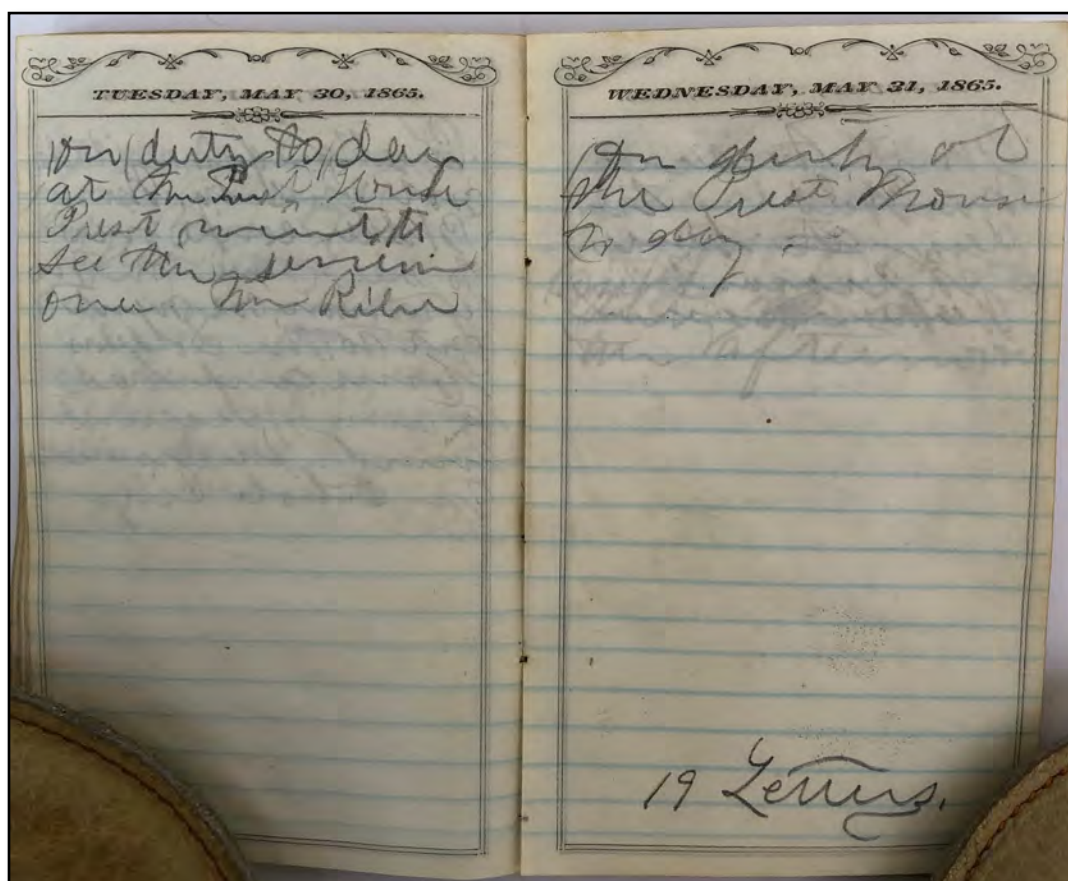 TUESDAY, MAY 30, 1865.
on duty to day
at the Prest House
Prest went to
see the
over the River
WEDNESDAY, MAY 31, 1865.
On duty at
the Prest House
to day.
19 Letters.